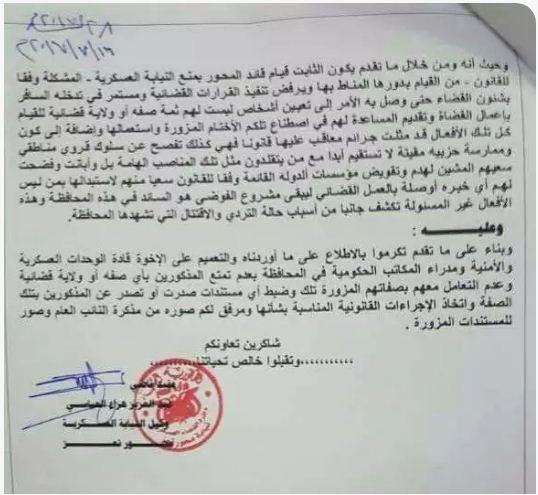 وحيث أنه ومن خلال ما تقدم يكون الثابت قيام قائد المحور بمنع النيابة العسكرية - المشكلة وفقا
للقانون - من القيام بدورها المناط بها ويرفض تنفيذ القرارات القضائية ومستمر في تدخله السافر
بشئون القضاء حتى وصل به الأمر إلى تعيين أشخاص ليست لهم ثمة صفه أو ولاية قضائية للقيام
بإعمال القضاة وتقديم المساعدة لهم في اصطناع تلكم الأختام المزورة واستعمالها وإضافة إلى كون
كل تلك الأفعال قد مثلت جرائم معاقب عليها قانونا فهي كذلك تفصح عن سلوك قروي مناطقي
وممارسة حزبيه مقيتة لا تستقيم أبدا مع من يتقلدون مثل تلك المناصب الهامة بل وأبانت وفضحت
سعيهم المشين لهدم وتقويض مؤسسات الدولة القائمة وفقا للقانون سعيا منهم لاستبدالها بمن ليس
لهم أي خبره أوصلة بالعمل القضائي ليبقى مشروع الفوضى هو السائد في هذه المحافظة وهذه
الأفعال غير المسئولة تكشف جانبا من أسباب حالة التردي والاقتتال التي تشهدها المحافظة.
وعليه :
وبناء على ما تقدم تكرموا بالاطلاع على ما أوردناه والتعميم على الإخوة قادة الوحدات العسكرية
والأمنية ومدراء المكاتب الحكومية في المحافظة بعدم تمتع المذكورين بأي صفه أو ولاية قضائية
وعدم التعامل معهم بصفاتهم المزورة تلك وضبط أي مستندات صدرت أو تصدر عن المذكورين بتلك
الصفة واتخاذ الإجراءات القانونية المناسبة بشأنها ومرفق لكم صوره من مذكرة النائب العام وصور
للمستندات المزورة .
شاكرين تعاونكم
...........وتقبلوا خالص تحياتنا...........
عبد العزيز هزاع
وكيل النيابة العسكرية
محور تعز